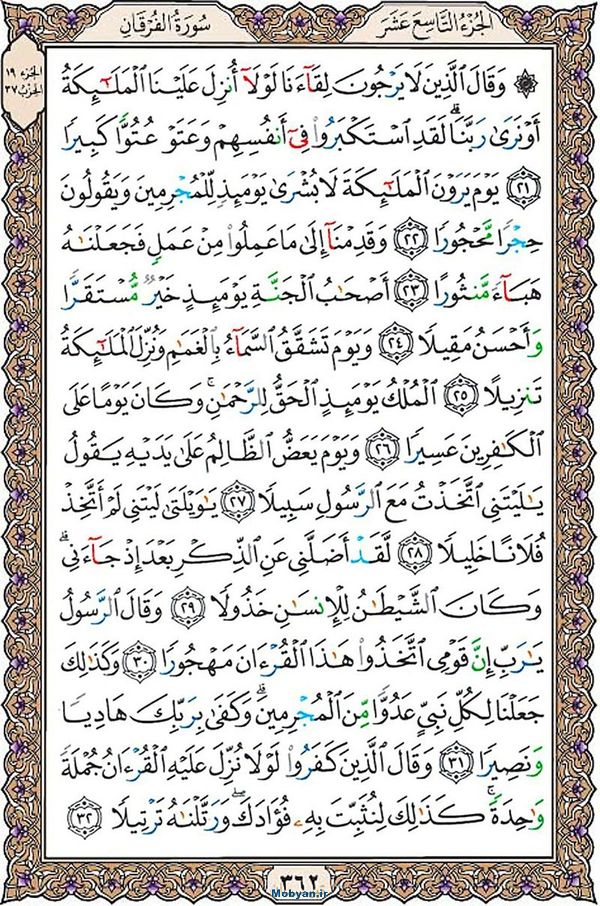 الجزء التاسع عشر
سورة الفرقان
الجزء ١٩
الحزب ٣٧
۞ وَقَالَ الَّذِينَ لَا يَرْجُونَ لِقَآءَنَا لَوْلَآ أُنزِلَ عَلَيْنَا الْمَلَٰٓئِكَةُ
أَوْ نَرَىٰ رَبَّنَا ۗ لَقَدِ اسْتَكْبَرُوا۟ فِىٓ أَنفُسِهِمْ وَعَتَوْ عُتُوًّا كَبِيرًا
٢١ يَوْمَ يَرَوْنَ الْمَلَٰٓئِكَةَ لَا بُشْرَىٰ يَوْمَئِذٍ لِّلْمُجْرِمِينَ وَيَقُولُونَ
حِجْرًا مَّحْجُورًا ٢٢ وَقَدِمْنَآ إِلَىٰ مَا عَمِلُوا۟ مِنْ عَمَلٍ فَجَعَلْنَٰهُ
هَبَآءً مَّنثُورًا ٢٣ أَصْحَٰبُ الْجَنَّةِ يَوْمَئِذٍ خَيْرٌ مُّسْتَقَرًّا
وَأَحْسَنُ مَقِيلًا ٢٤ وَيَوْمَ تَشَقَّقُ السَّمَآءُ بِالْغَمَٰمِ وَنُزِّلَ الْمَلَٰٓئِكَةُ
تَنزِيلًا ٢٥ الْمُلْكُ يَوْمَئِذٍ الْحَقُّ لِلرَّحْمَٰنِ ۚ وَكَانَ يَوْمًا عَلَى
الْكَٰفِرِينَ عَسِيرًا ٢٦ وَيَوْمَ يَعَضُّ الظَّالِمُ عَلَىٰ يَدَيْهِ يَقُولُ
يَٰلَيْتَنِى اتَّخَذْتُ مَعَ الرَّسُولِ سَبِيلًا ٢٧ يَٰوَيْلَتَىٰ لَيْتَنِى لَمْ أَتَّخِذْ
فُلَانًا خَلِيلًا ٢٨ لَّقَدْ أَضَلَّنِى عَنِ الذِّكْرِ بَعْدَ إِذْ جَآءَنِى ۗ
وَكَانَ الشَّيْطَٰنُ لِلْإِنسَٰنِ خَذُولًا ٢٩ وَقَالَ الرَّسُولُ
يَٰرَبِّ إِنَّ قَوْمِى اتَّخَذُوا۟ هَٰذَا الْقُرْءَانَ مَهْجُورًا ٣٠ وَكَذَٰلِكَ
جَعَلْنَا لِكُلِّ نَبِىٍّ عَدُوًّا مِّنَ الْمُجْرِمِينَ ۗ وَكَفَىٰ بِرَبِّكَ هَادِيًا
وَنَصِيرًا ٣١ وَقَالَ الَّذِينَ كَفَرُوا۟ لَوْلَا نُزِّلَ عَلَيْهِ الْقُرْءَانُ جُمْلَةً
وَٰحِدَةً ۚ كَذَٰلِكَ لِنُثَبِّتَ بِهِۦ فُؤَادَكَ ۖ وَرَتَّلْنَٰهُ تَرْتِيلًا ٣٢
٣٦٢
Mobyan.ir